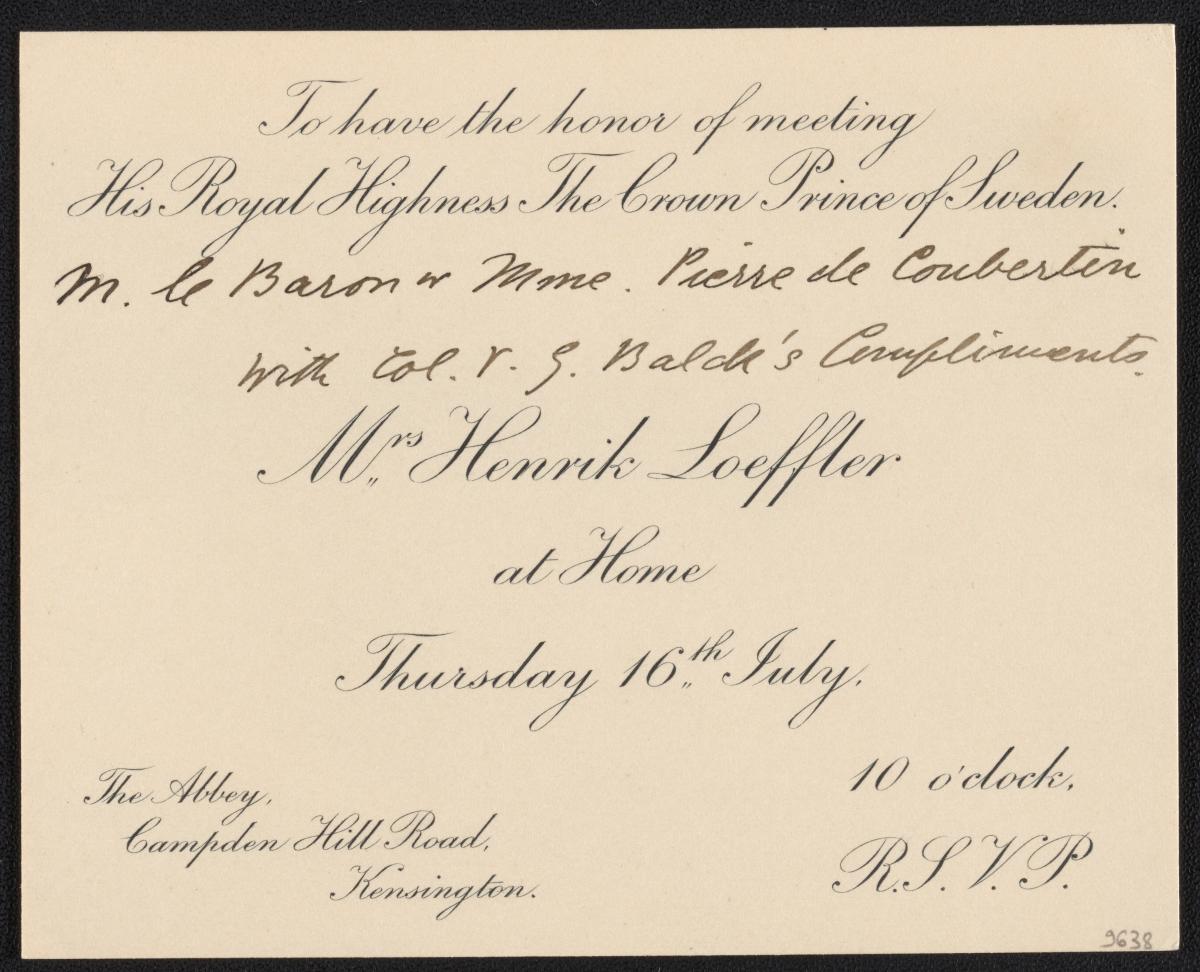 To have the honor of meeting
His Royal Highness The Crown Prince of Sweden.
M. le Baron & Mme. Pierre de Coubertin
with Col. V. G. Balck's Compliments.
Mrs Henrik Loeffler
at Home
Thursday 16th July.
10 o'clock.
The Abbey,
Campden Hill Road,
Kensington.
R.S.V.P.
9638